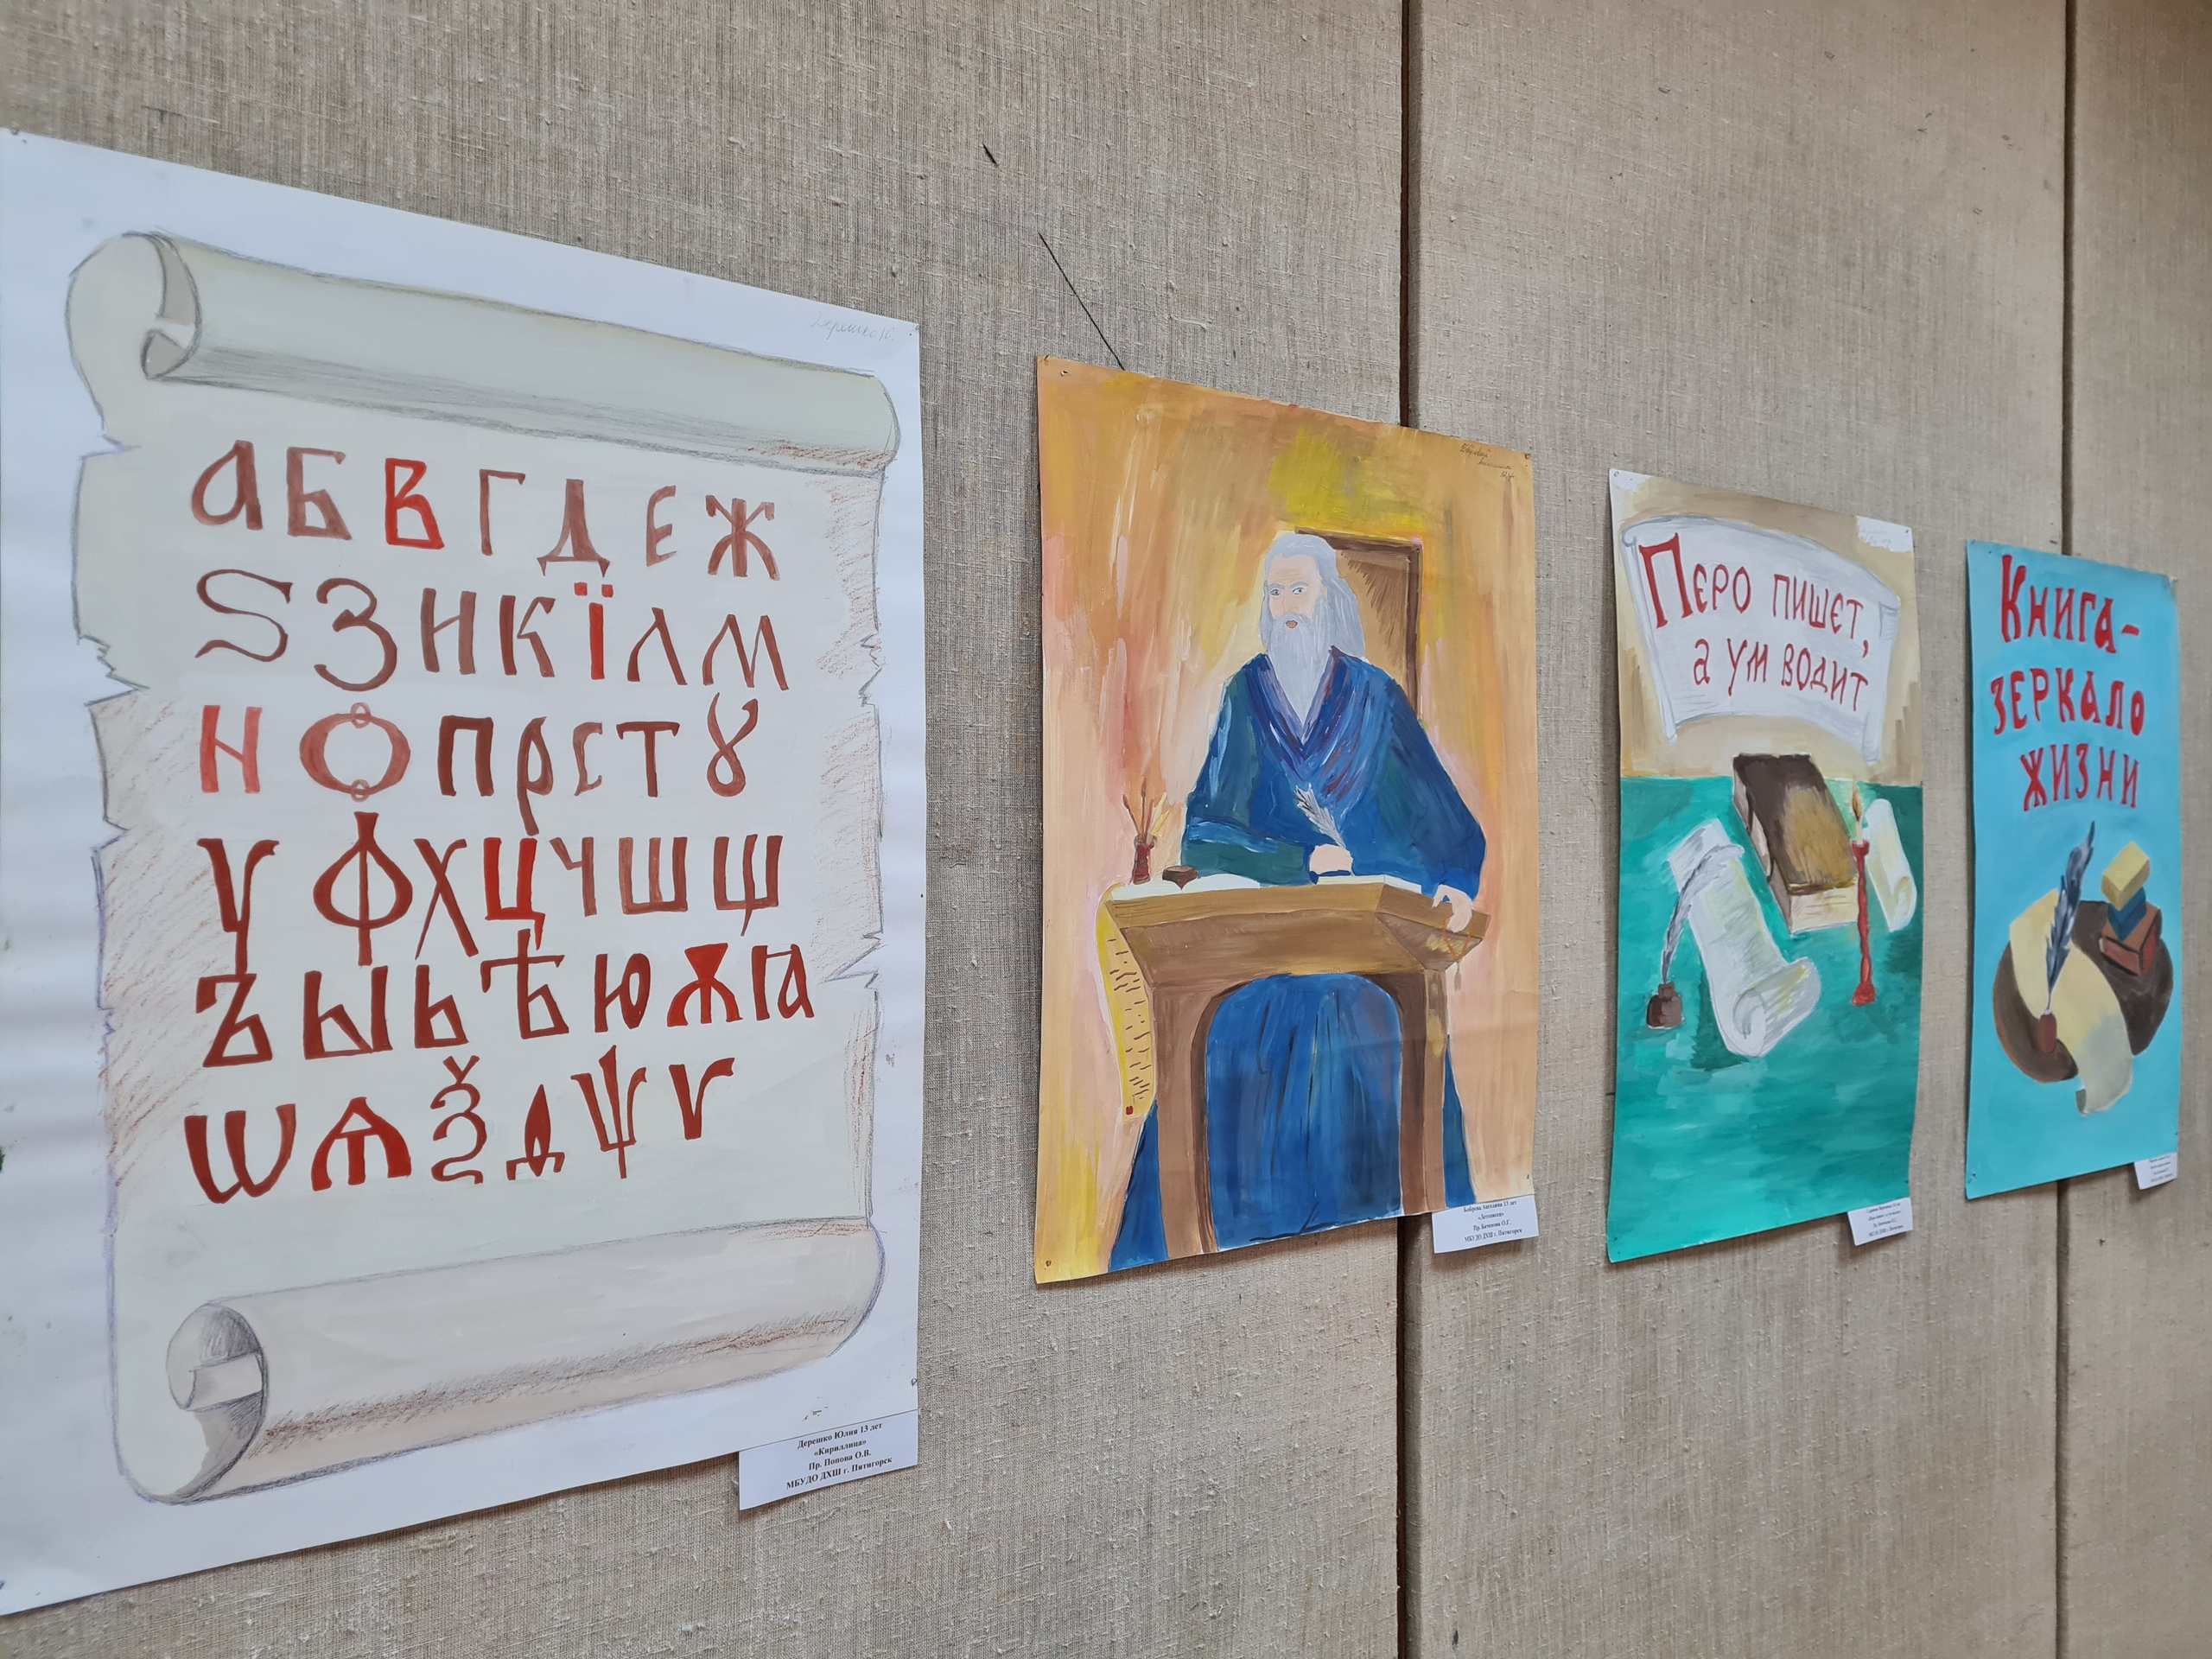 Дерешко Ю.
А Б В Г Д Е Ж
Ѕ З И К Ї Л М
Н О П Р С Т Ꙋ
У Ф Х Ц Ч Ш Щ
Ъ Ы Ь Ѣ Ю Ѫ Ꙗ
Ѡ Ѧ Ѯ Д Ѱ Ѵ
Дерешко Юлия 13 лет
«Кириллица»
Пр. Попова О.В.
МБУДО ДХШ г. Пятигорск
Боброва Ангелина 13 лет
«Летописец»
Пр. О.Г.
МБУДО ДХШ г. Пятигорск
Перо пишет,
а ум водит
МБУДО ДХШ г. Пятигорск
Книга-
зеркало
жизни